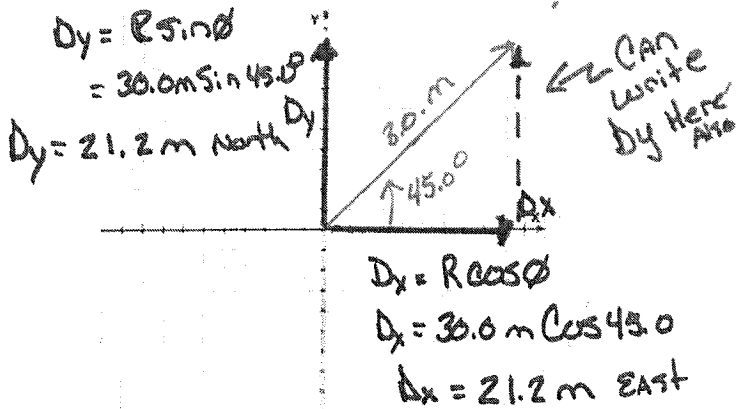 Dy = R sinØ
= 30.0m Sin 45.0°
Dy = 21.2 m North
Dy
30.m
45.0°
CAN
write
Dy Here
Also
Dx
Dx = R cosØ
Dx = 30.0 m Cos 45.0
Dx = 21.2 m EAST